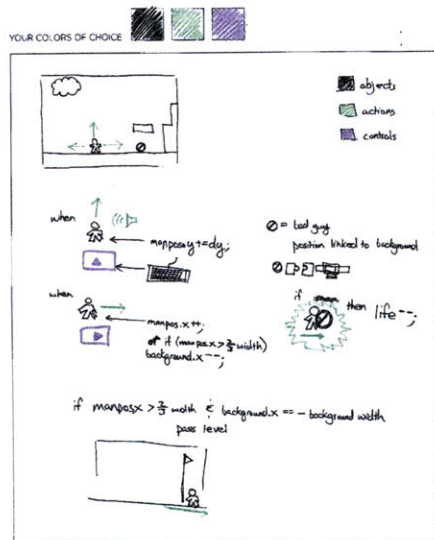 YOUR COLORS OF CHOICE
objects
actions
controls
when
manpos.y += dy;
= bad guy
position linked to background
when
manpos.x ++;
if (manpos.x > 2/3 width)
background.x --;
if
then life --;
if manpos.x > 2/3 width & background.x == - background width
pass level